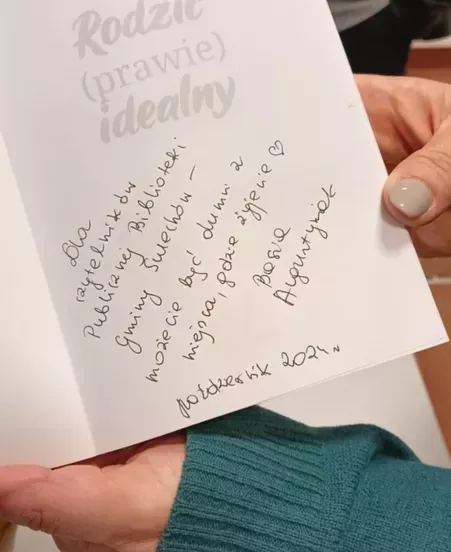 Rodzic
(prawie)
idealny
Dla
czytelników
Publicznej Biblioteki
Gminy Świechów –
możecie być dumni z
miejsca, gdzie żyjecie ♡
Basia
Augustyniak
październik 2024 r.